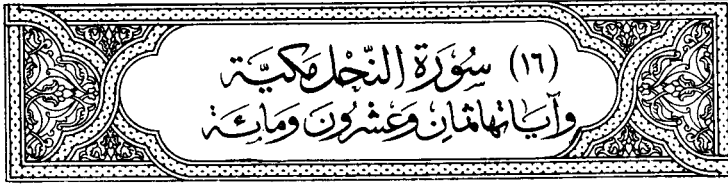 (١٦) سُورَة النَّحْل مَكيَّة
وَآيَاتهَا ثَمَانٍ وَعشْرُونَ وَمَائة